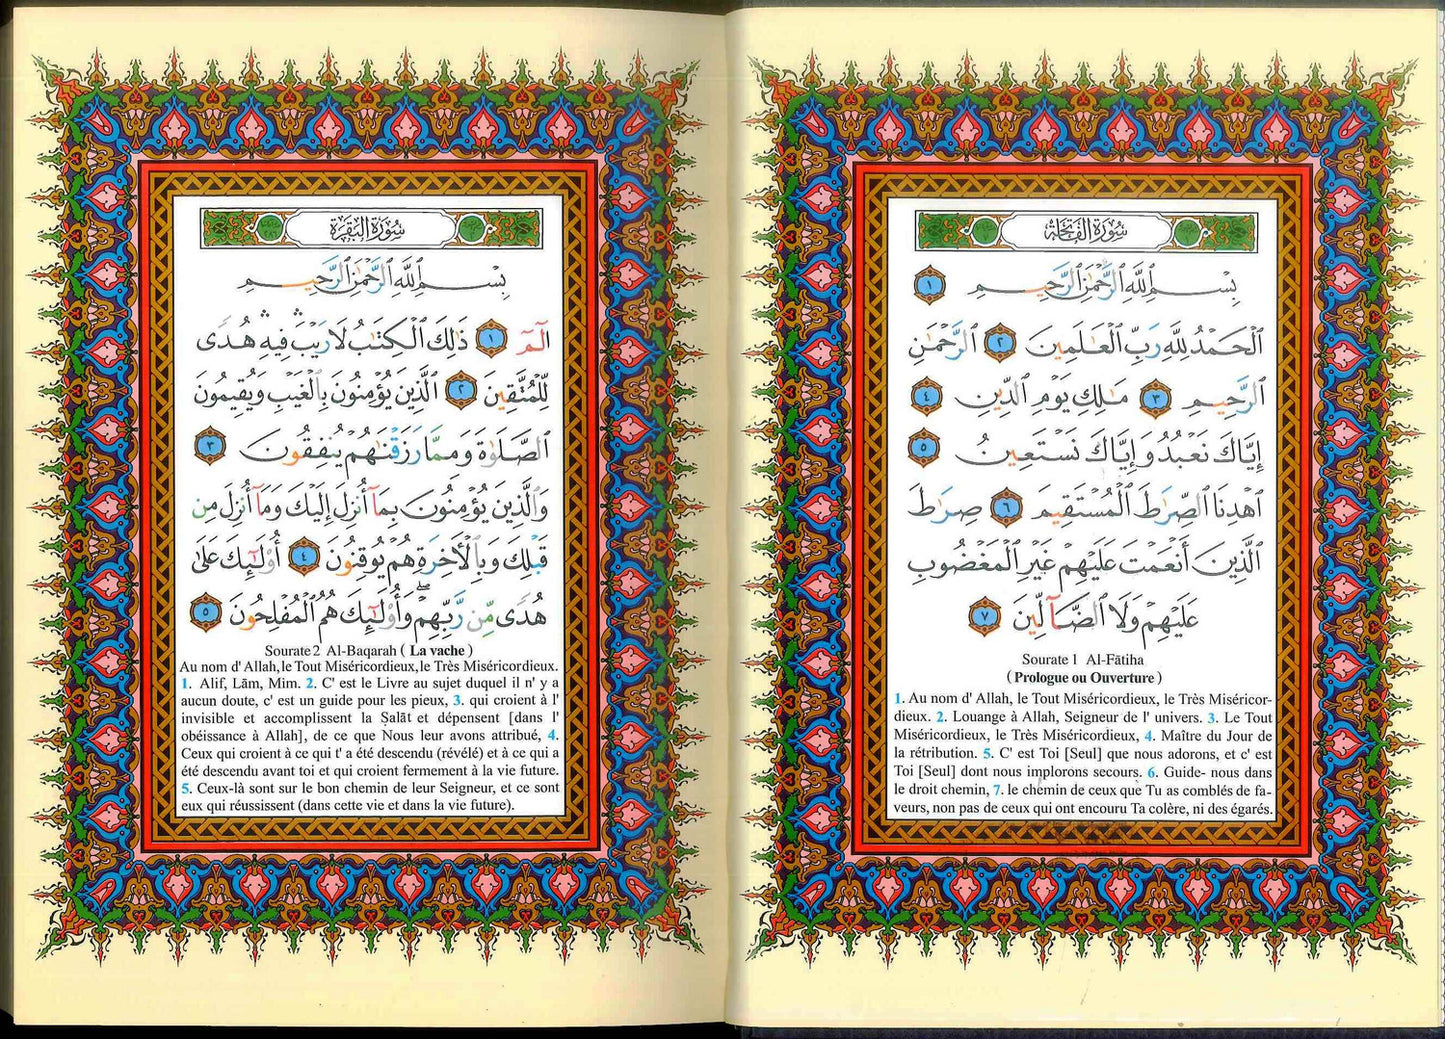 سُورَةُ الْفَاتِحَةِ
بِسْمِ ٱللَّهِ ٱلرَّحْمَٰنِ ٱلرَّحِيمِ ١
ٱلْحَمْدُ لِلَّهِ رَبِّ ٱلْعَٰلَمِينَ ٢ ٱلرَّحْمَٰنِ
ٱلرَّحِيمِ ٣ مَٰلِكِ يَوْمِ ٱلدِّينِ ٤
إِيَّاكَ نَعْبُدُ وَإِيَّاكَ نَسْتَعِينُ ٥
ٱهْدِنَا ٱلصِّرَٰطَ ٱلْمُسْتَقِيمَ ٦ صِرَٰطَ
ٱلَّذِينَ أَنْعَمْتَ عَلَيْهِمْ غَيْرِ ٱلْمَغْضُوبِ
عَلَيْهِمْ وَلَا ٱلضَّآلِّينَ ٧
Sourate 1 Al-Fātiha
( Prologue ou Ouverture )
1. Au nom d' Allah, le Tout Miséricordieux, le Très Miséricor-
dieux. 2. Louange à Allah, Seigneur de l' univers. 3. Le Tout
Miséricordieux, le Très Miséricordieux, 4. Maître du Jour de
la rétribution. 5. C' est Toi [Seul] que nous adorons, et c' est
Toi [Seul] dont nous implorons secours. 6. Guide- nous dans
le droit chemin, 7. le chemin de ceux que Tu as comblés de fa-
veurs, non pas de ceux qui ont encouru Ta colère, ni des égarés.
سُورَةُ الْبَقَرَةِ
بِسْمِ ٱللَّهِ ٱلرَّحْمَٰنِ ٱلرَّحِيمِ
الٓمٓ ١ ذَٰلِكَ ٱلْكِتَٰبُ لَا رَيْبَ ۛ فِيهِ ۛ هُدًى
لِّلْمُتَّقِينَ ٢ ٱلَّذِينَ يُؤْمِنُونَ بِٱلْغَيْبِ وَيُقِيمُونَ
ٱلصَّلَوٰةَ وَمِمَّا رَزَقْنَٰهُمْ يُنفِقُونَ ٣
وَٱلَّذِينَ يُؤْمِنُونَ بِمَآ أُنزِلَ إِلَيْكَ وَمَآ أُنزِلَ مِن
قَبْلِكَ وَبِٱلْءَاخِرَةِ هُمْ يُوقِنُونَ ٤ أُو۟لَٰٓئِكَ عَلَىٰ
هُدًى مِّن رَّبِّهِمْ ۖ وَأُو۟لَٰٓئِكَ هُمُ ٱلْمُفْلِحُونَ ٥
Sourate 2 Al-Baqarah ( La vache )
Au nom d' Allah, le Tout Miséricordieux, le Très Miséricordieux.
1. Alif, Lām, Mim. 2. C' est le Livre au sujet duquel il n' y a
aucun doute, c' est un guide pour les pieux, 3. qui croient à l'
invisible et accomplissent la Ṣalāt et dépensent [dans l'
obéissance à Allah], de ce que Nous leur avons attribué, 4.
Ceux qui croient à ce qui t' a été descendu (révélé) et à ce qui a
été descendu avant toi et qui croient fermement à la vie future.
5. Ceux-là sont sur le bon chemin de leur Seigneur, et ce sont
eux qui réussissent (dans cette vie et dans la vie future).